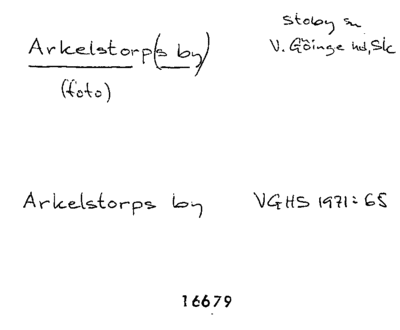 Arkelstorp(s by)
(foto)
Stoby sn
V. Göinge hd, Sk
Arkelstorps by VGHS 1971:65
16679